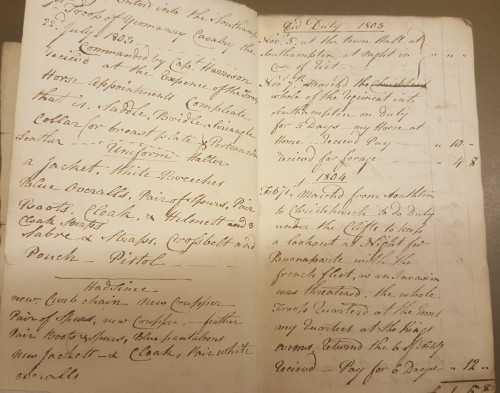 Entered into the Southamp
Troop of Yeomanry Cavalry the
22d. July 1803.
Commanded by Capt. Harrison
Recieved at the Expence of the Troop
Horse Appointments Compleate
that is, Saddle, Bridle, Surcingle
Collar (or breast plate & Portmanteau
Leather Uniform Halter
a Jacket, White Breeches
Blue Overalls, Pair of Spurs, Pair
Boots. Cloak, & Helmett and 3
Cloak Straps
Sabre & Straps. Crossbelt and
Pouch - Pistol
Had Since
new Curb chain new Crupper
Pair of Spurs, new Crupper - feather
Pair Boots & Spurs, Blue pantaloons
new Jackett - & Cloak, Pair white
overalls
Did Duty 1803
Novr. 5, at the town Hall at
Southampton at Night in
Case of Riot
Novr. 7th. Marched the Christchurch
whole of the Regiment into
Southampton on Duty
for 5 days - my Horse at
Home Recieved Pay " 10 "
Recieved for forage " 4 8
1804
Feb 7th. March'd from Southton
to Christchurch to do Duty
under the Cliffs to keep
a lookout at Night for
Buonaparte with the
french fleet, as an Invasion
was threatened, the whole
Troop Quartered at the Inns
my Quarters at the Kings
arms, Returnd the 6 of Feby
Recievd - Pay for 6 Days " 12 "